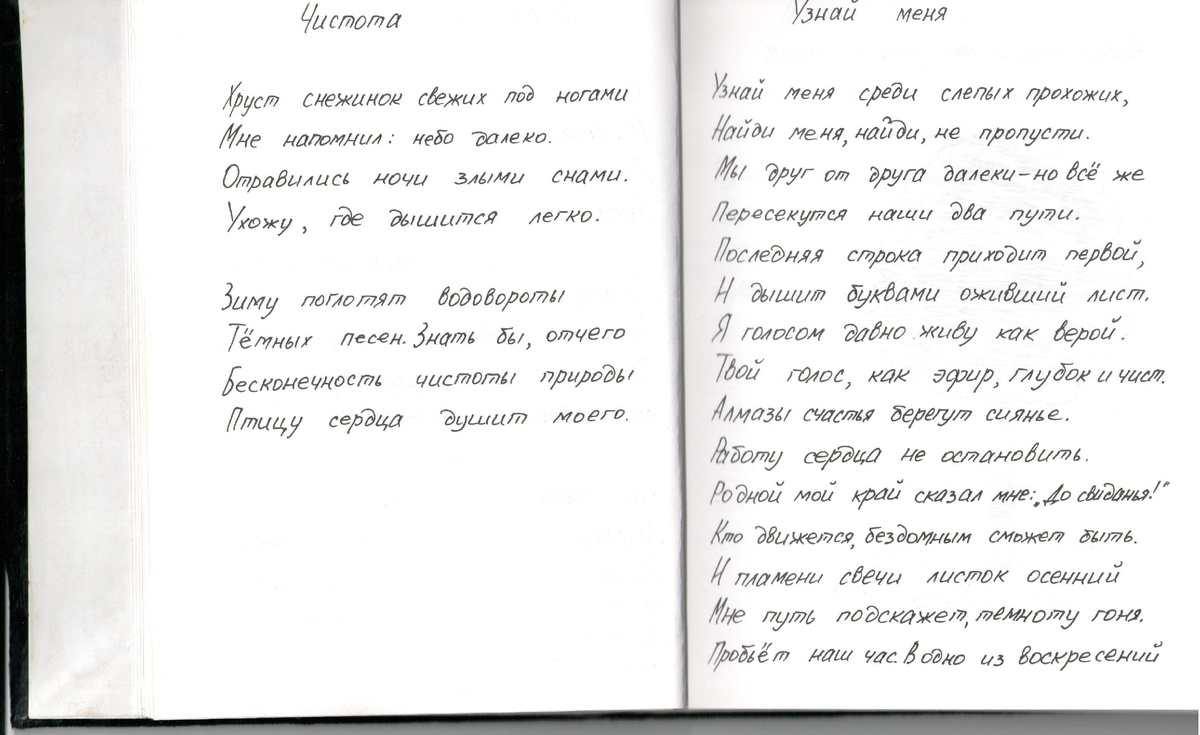 Чистота
Хруст снежинок свежих под ногами
Мне напомнил: небо далеко.
Отравились ночи злыми снами.
Ухожу, где дышится легко.
Зиму поглотят водовороты
Тёмных песен. Знать бы, отчего
Бесконечность чистоты природы
Птицу сердца душит моего.
Узнай меня
Узнай меня среди слепых прохожих,
Найди меня, найди, не пропусти.
Мы друг от друга далеки – но всё же
Пересекутся наши два пути.
Последняя строка приходит первой,
И дышит буквами оживший лист.
Я голосом давно живу как верой.
Твой голос, как эфир, глубок и чист.
Алмазы счастья берегут сиянье.
Работу сердца не остановить.
Родной мой край сказал мне: „До свиданья!“
Кто движется, бездомным сможет быть.
И пламени свечи листок осенний
Мне путь подскажет, темноту гоня.
Пробьёт наш час. В одно из воскресений